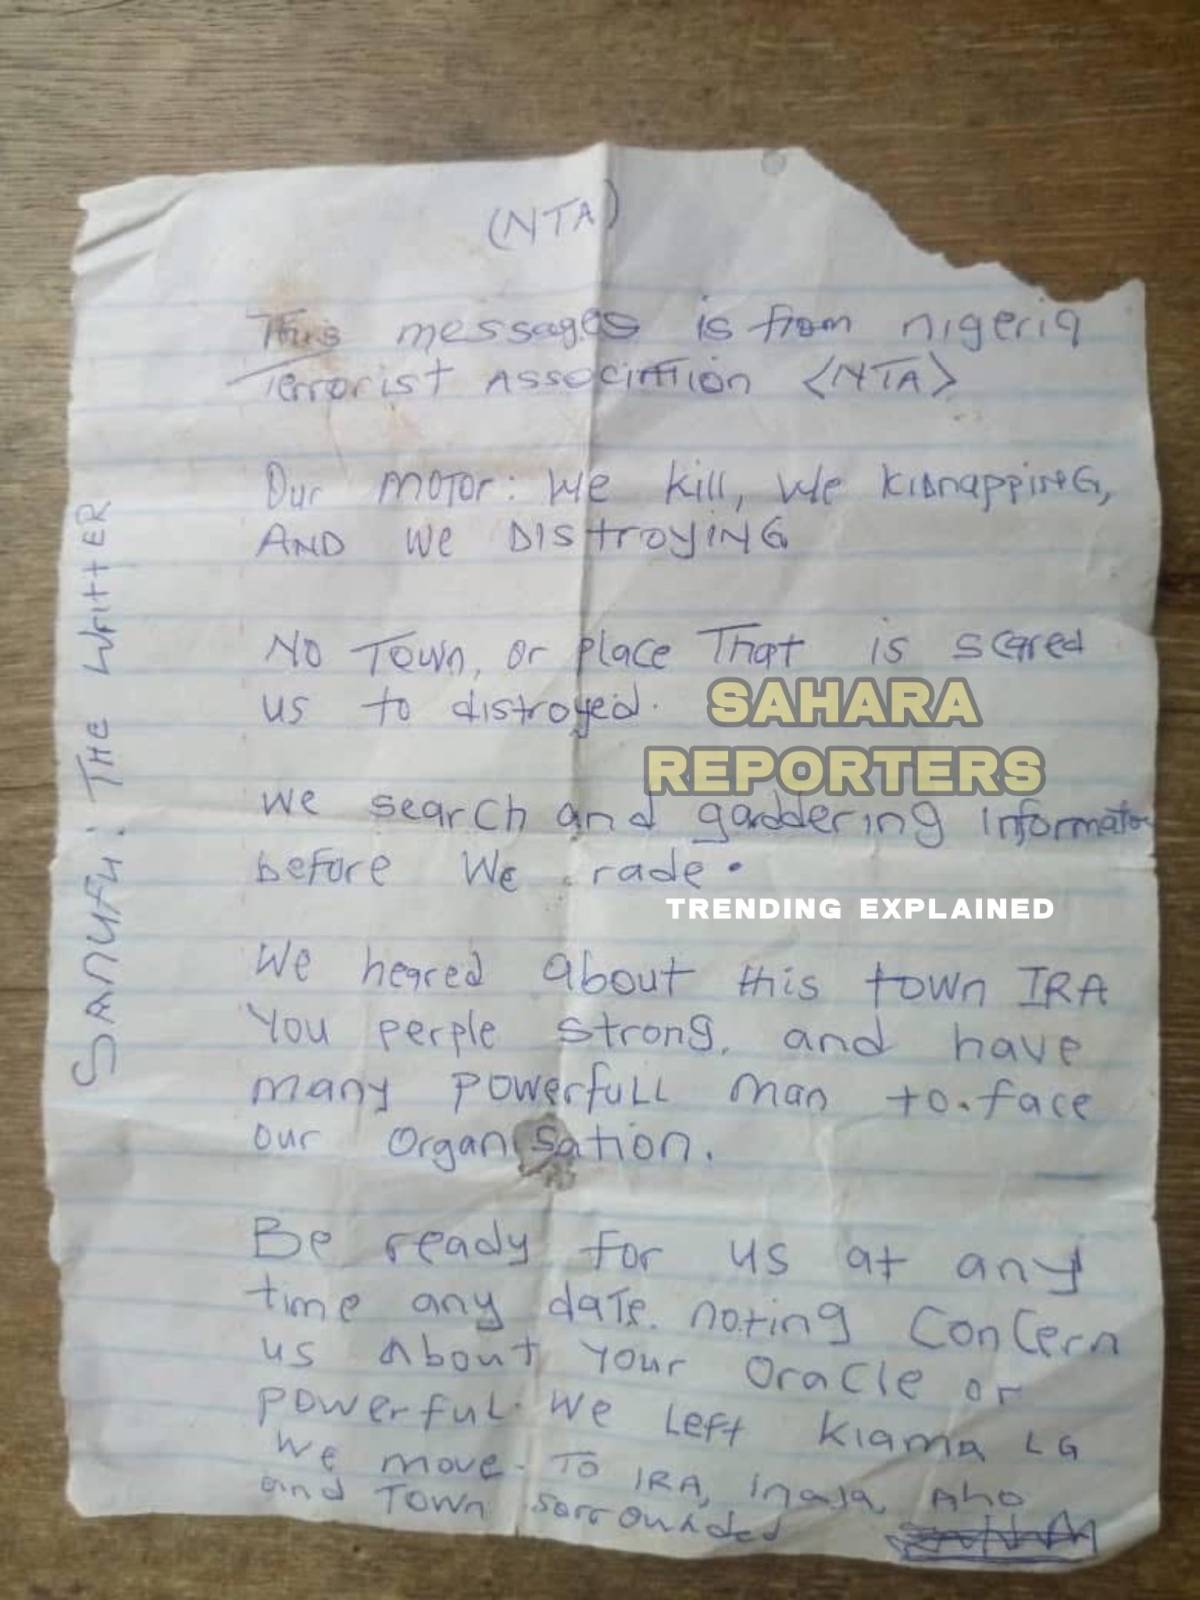 (NTA)
This messages is from nigeria
Terrorist Association <NTA>
Our motor: we kill, we kidnapping,
AND we DIStroyING
No Town, or place That is scared
us to distroyed.
SAHARA
REPORTERS
we search and gaddering informatio
before we rade.
TRENDING EXPLAINED
We heared about this town IRA
You perple strong, and have
many powerfull man to.face
our organisation.
Be ready for us at any
time any date. noting concern
us About your oracle or
powerful. we left kiama LG
we move. To IRA, inaja, Aho
and Town sorrounded
SANUFU: THE WRITTER